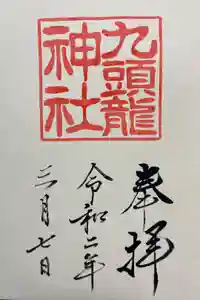 九頭龍
神社
奉拝
令和二年
三月七日